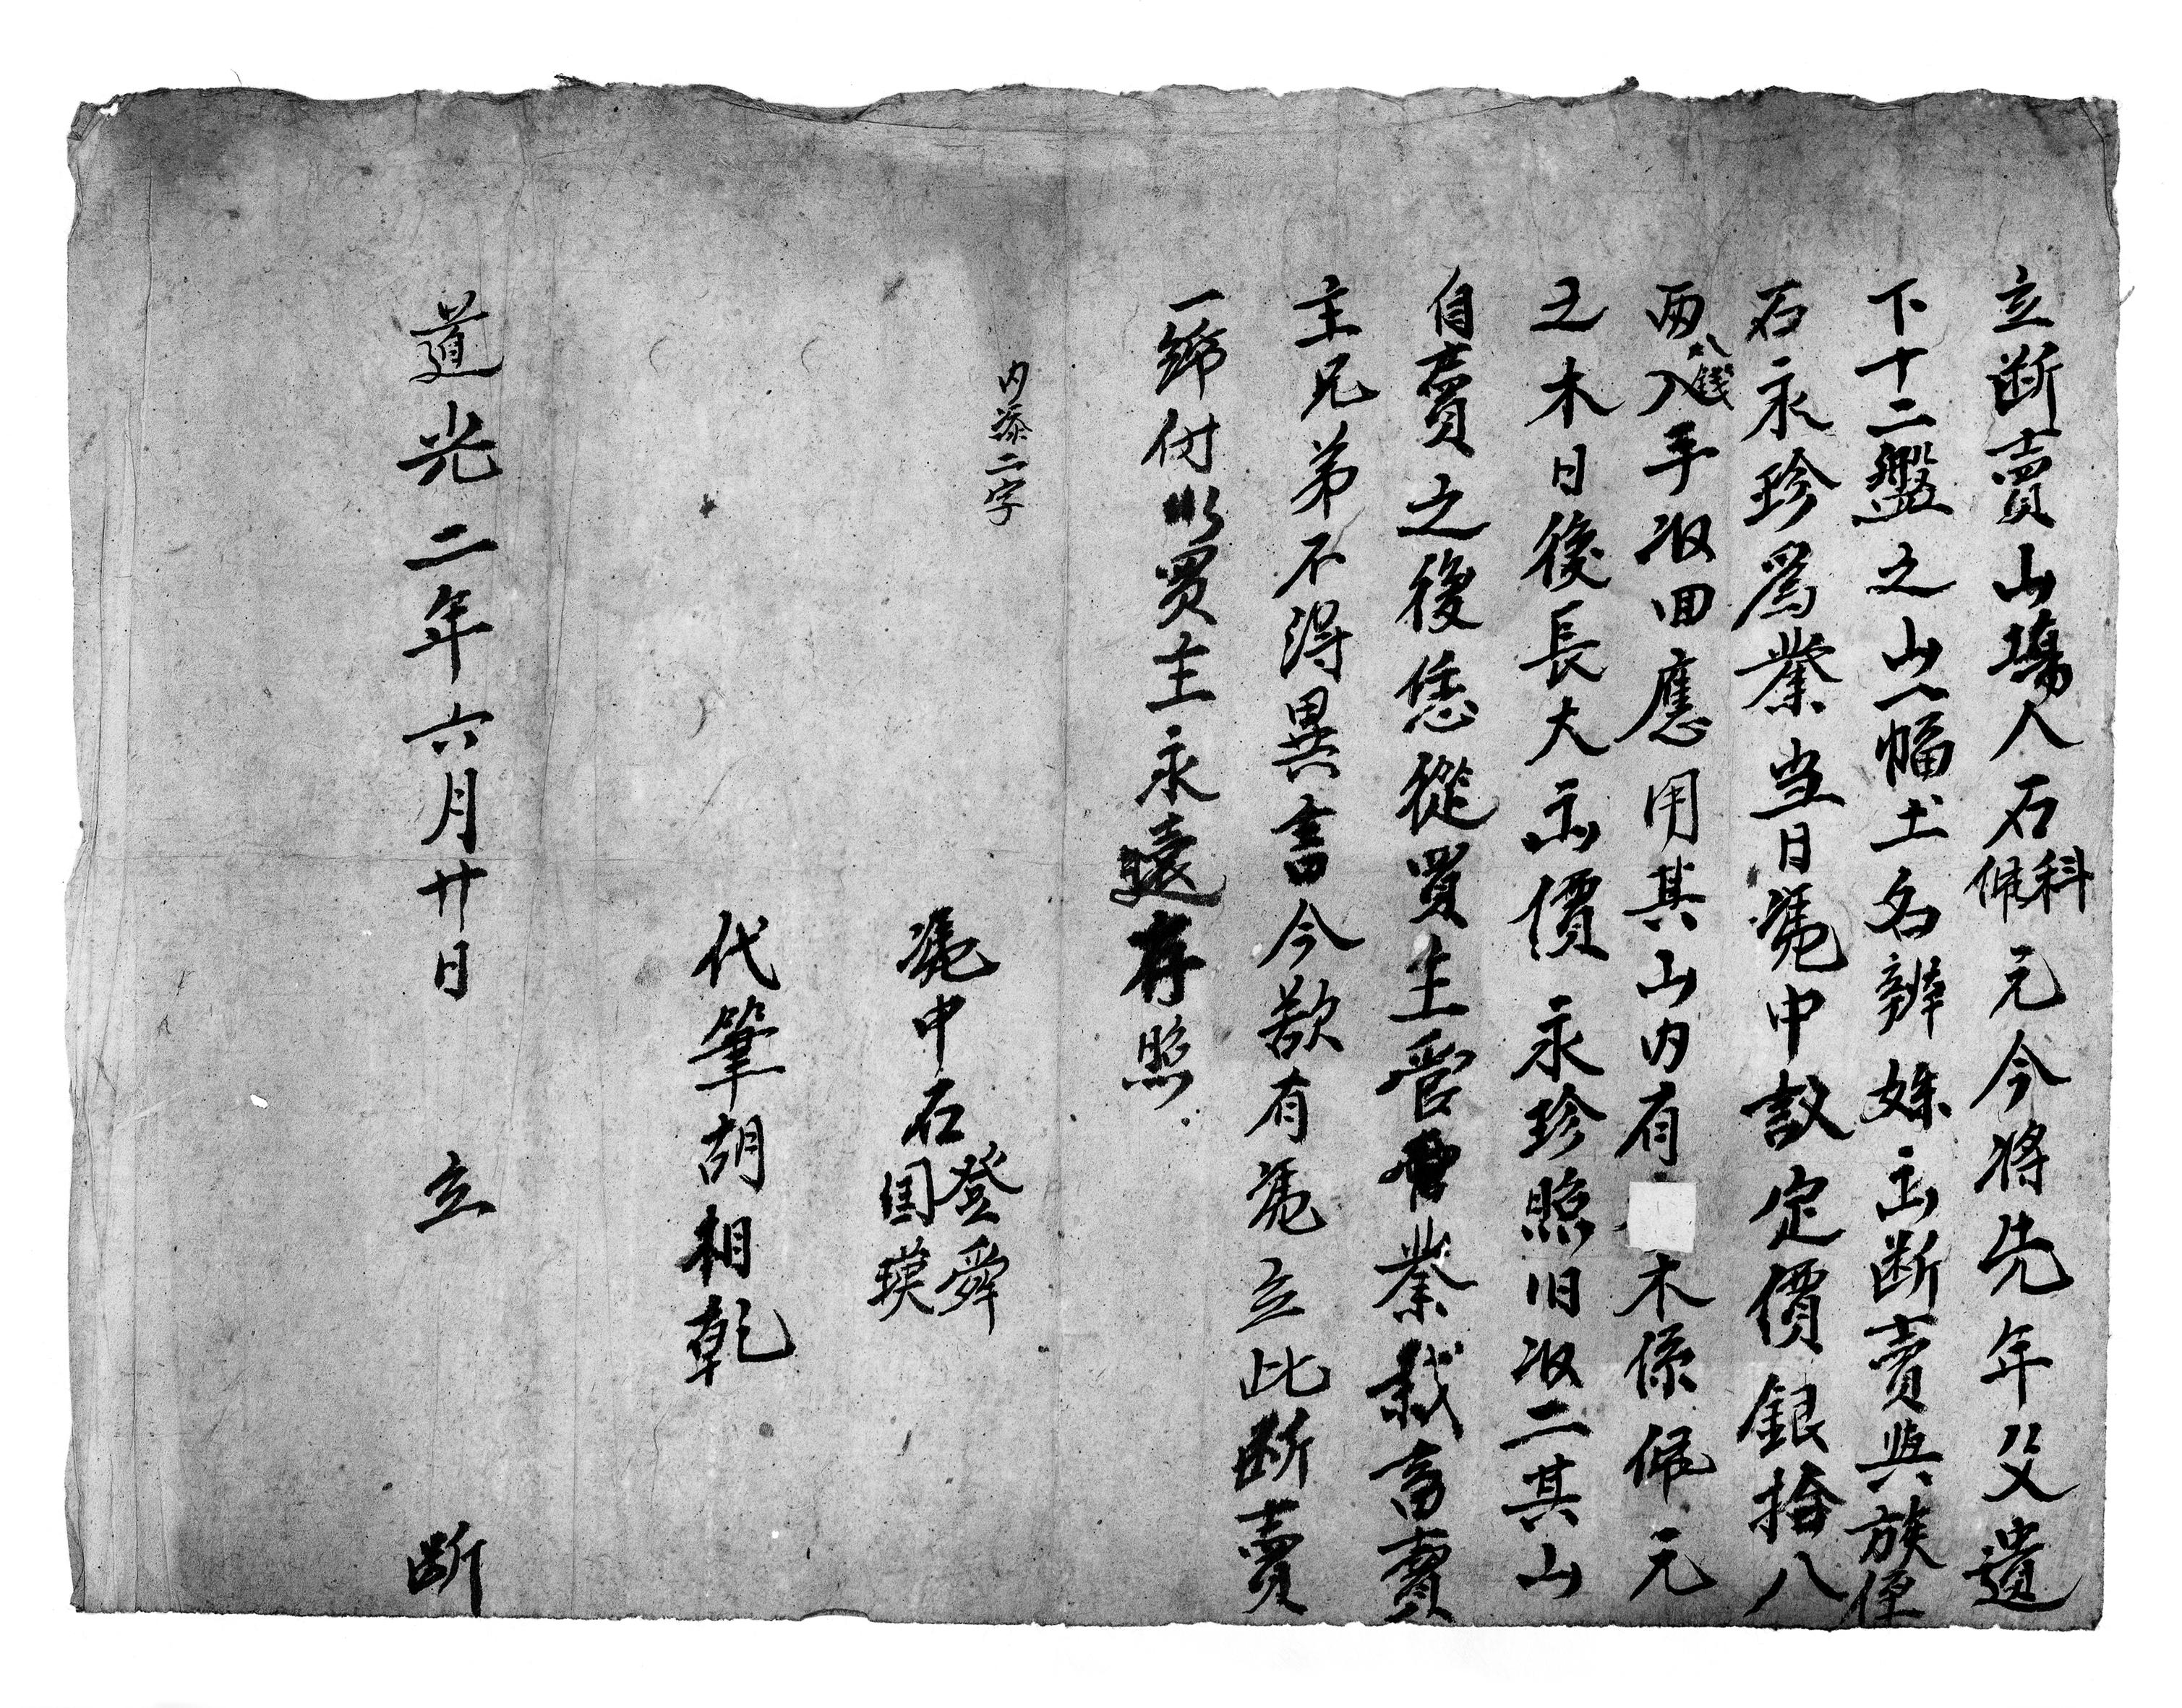 立断賣山塲人石科佩元今將先年父遺
下十二盤之山一幅土名辨姝出断賣與族侄
石永珍爲業当日凴中議定價銀拾八
兩八錢入手收回應用其山内有木係佩元
之木日後長大出價永珍照旧收二其山
自賣之後恁從買主管業栽畜賣
主兄弟不得異言今欲有凴立此断賣
一纸付與買主永遠存照
内添二字
凴中石登舜国瑛
代筆胡相乾
道光二年六月廿日立断